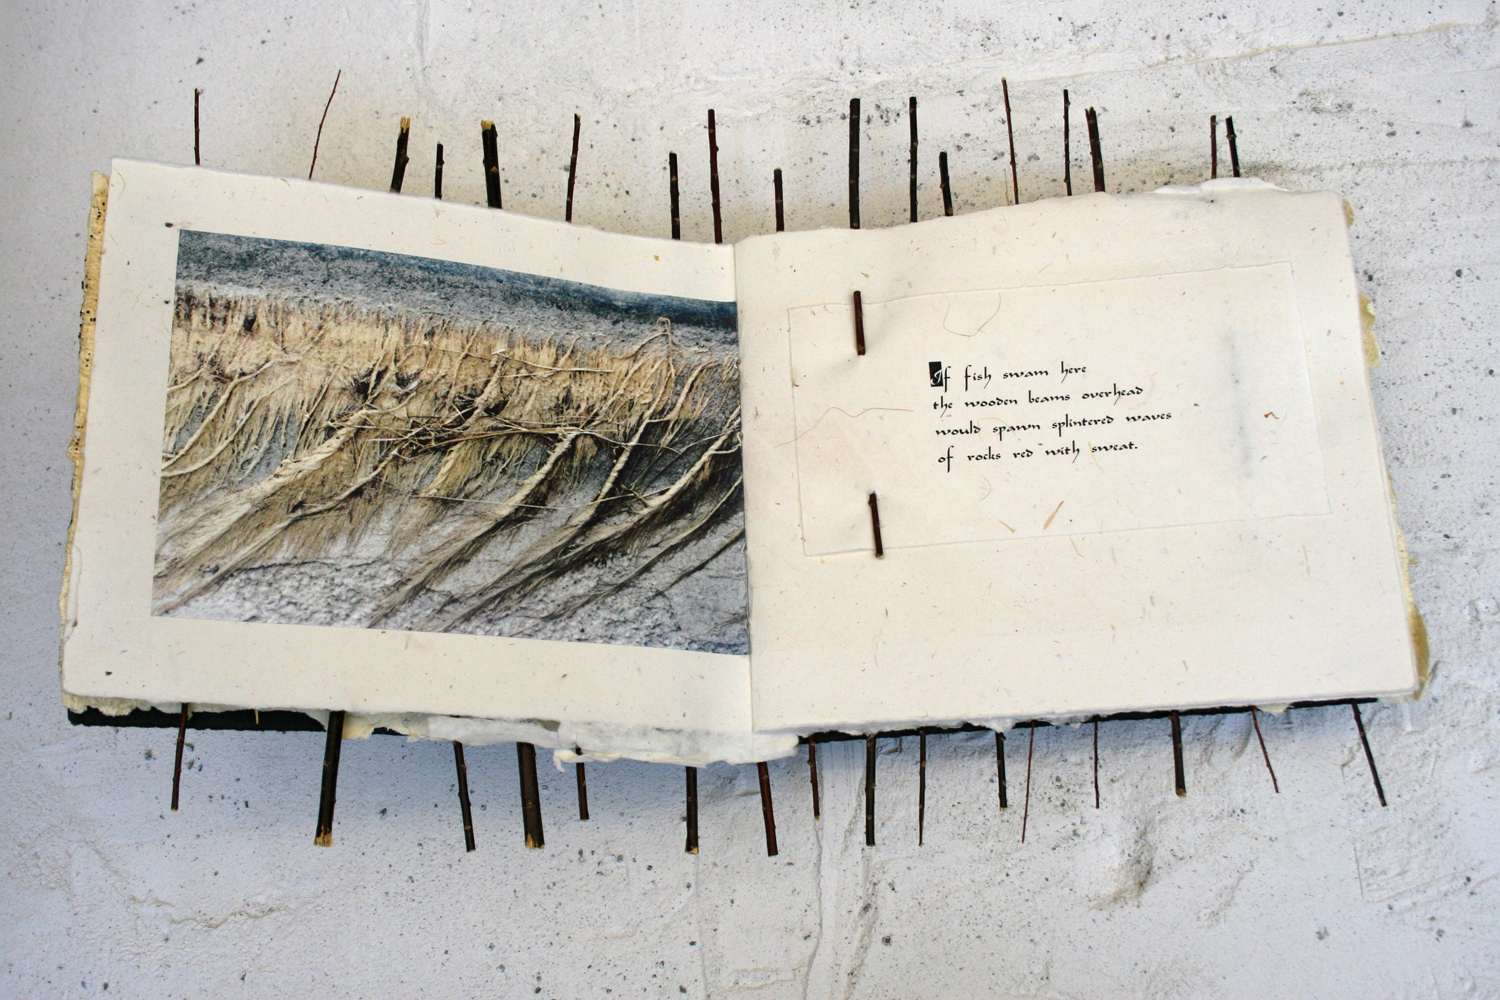 If fish swam here
the wooden beams overhead
would spawn splintered waves
of rocks red with sweat.